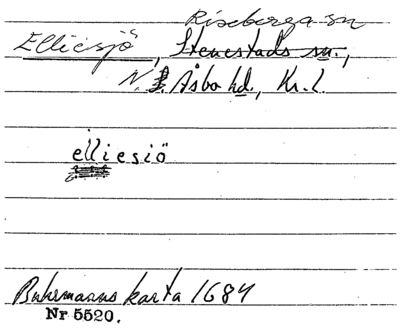 Riseberga sn
Elliesjö, Stenestads sn.,
N. Åsbo hd., Kr. l.
elliesiö
Buhrmanns karta 1684
Nr 5520.